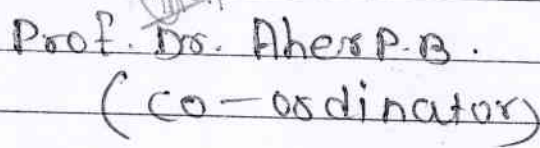 Prof. Dr. Aher P.B.
(co-ordinator)